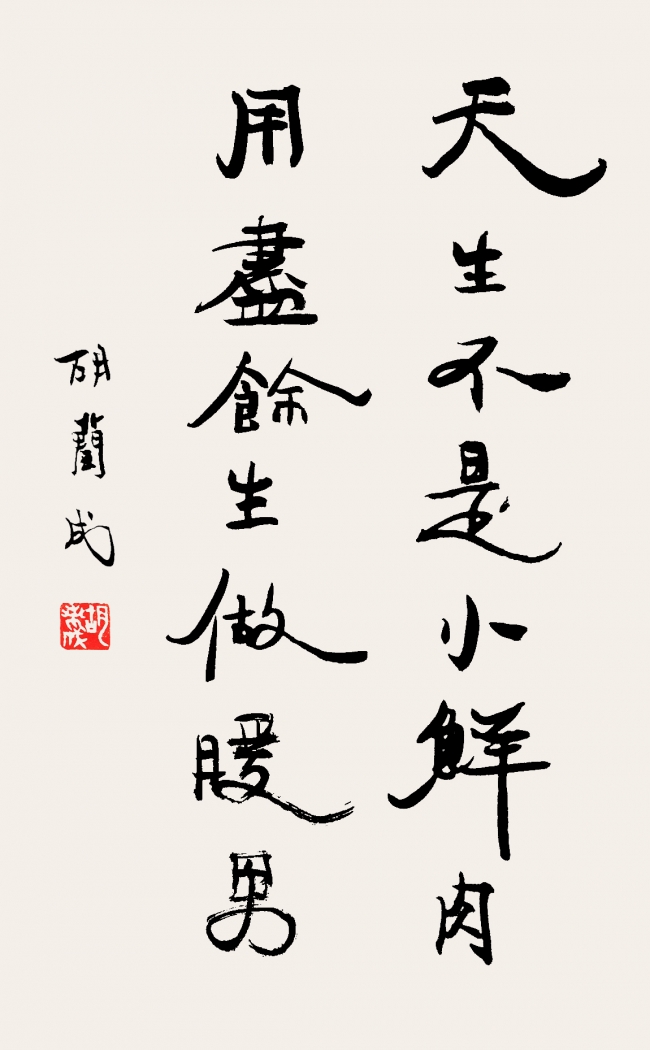 天生不是小鮮肉
用盡餘生做暖男
胡蘭成